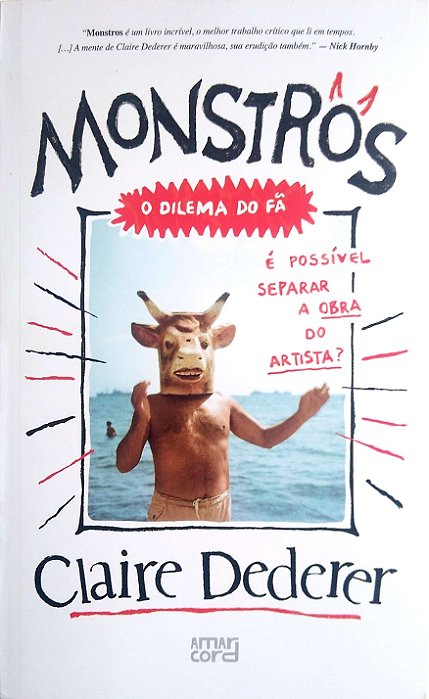 "Monstros é um livro incrível, o melhor trabalho crítico que li em tempos.
[...] A mente de Claire Dederer é maravilhosa, sua erudição também." — Nick Hornby
MONSTROS
O DILEMA DO FÃ
É POSSÍVEL
SEPARAR
A OBRA
DO
ARTISTA?
Claire Dederer
AMAR
CORD